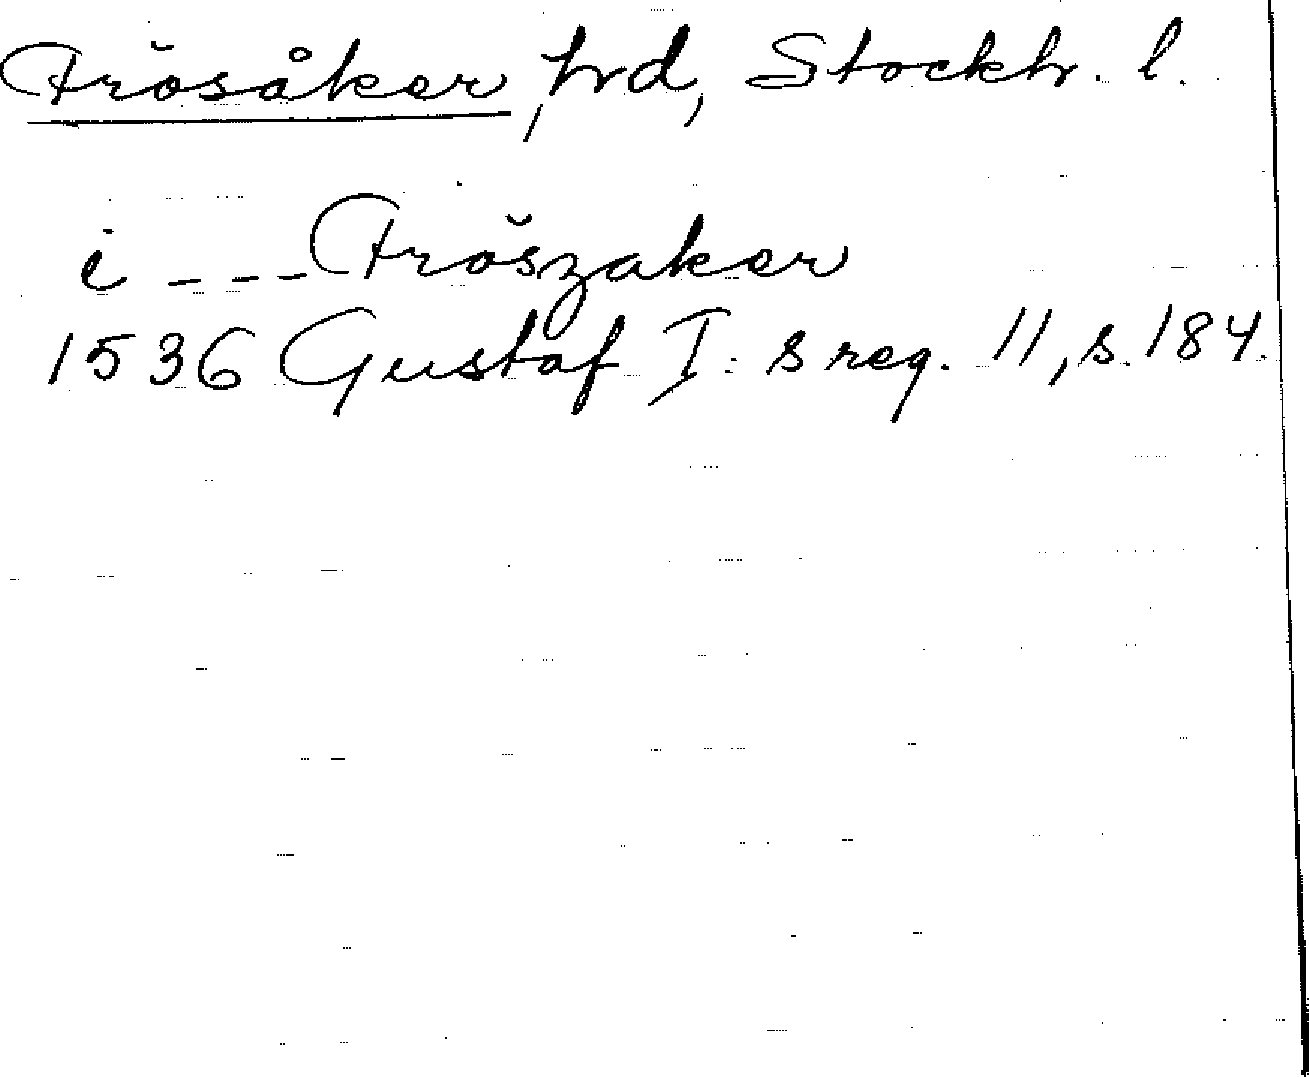 Frösåker, hrd, Stockh. l.
i - - - Fröszaker
1536 Gustaf I: s reg. 11, s. 184.